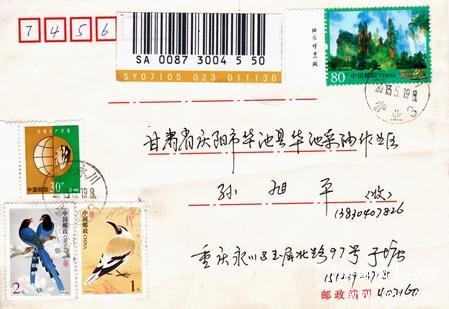 7 4 5 6
SA 0087 3004 5 50
SY07105 023 011130
80 中国邮政 CHINA
2013.5.19.8
甘肃省庆阳市华池县华池采油作业区
孙旭平（收）
13830407826
中国邮政
30分
中国邮政 CHINA
2元
中国邮政 CHINA
1元
重庆永川区玉屏北路97号
邮政编码 402160